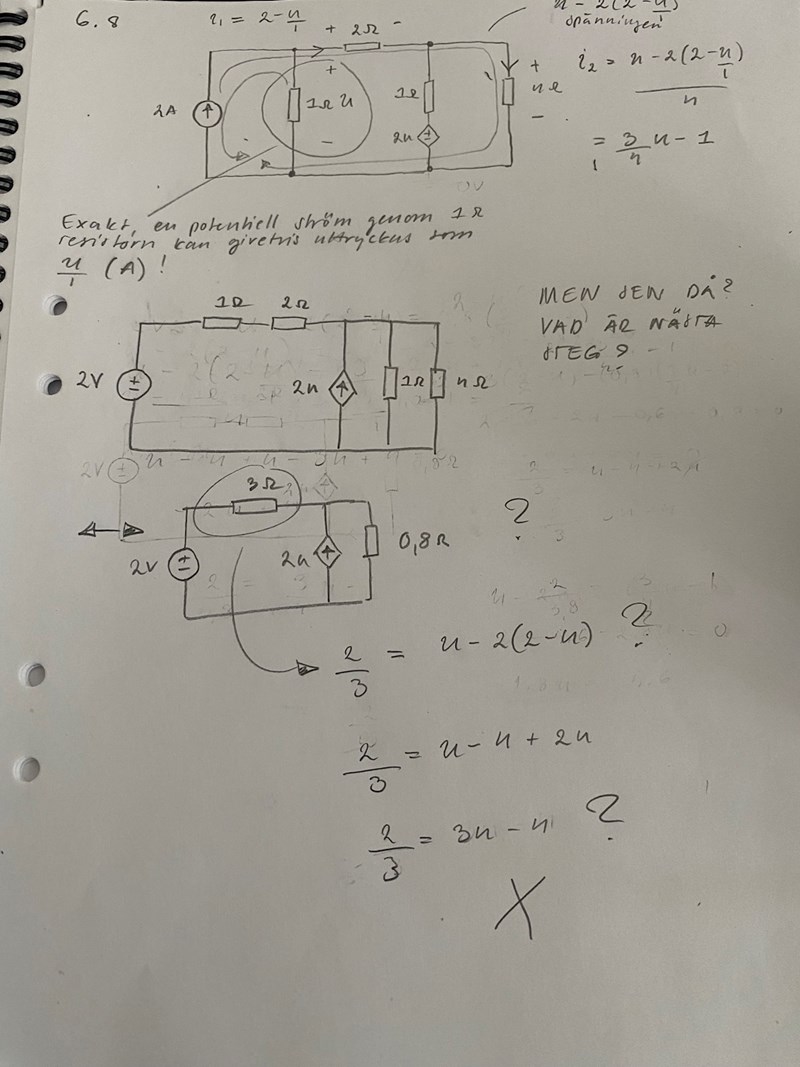 6.8
i₁ = 2 - u/1
u - 2(2 - u)
spänningen
+ 2Ω -
2A
+
1Ω u
-
1Ω
2u
+
4Ω
-
i₂ = u - 2(2 - u/1)
4
= 3/4 u - 1
Exakt, en potentiell ström genom 1Ω
resistorn kan givetvis uttryckas som
u/1 (A) !
MEN SEN DÅ?
VAD ÄR NÄSTA
STEG?
1Ω 2Ω
2V
2u
1Ω
4Ω
3Ω
2V
2u
0,8Ω
?
2/3 = u - 2(2 - u) ?
2/3 = u - 4 + 2u
2/3 = 3u - 4 ?
X